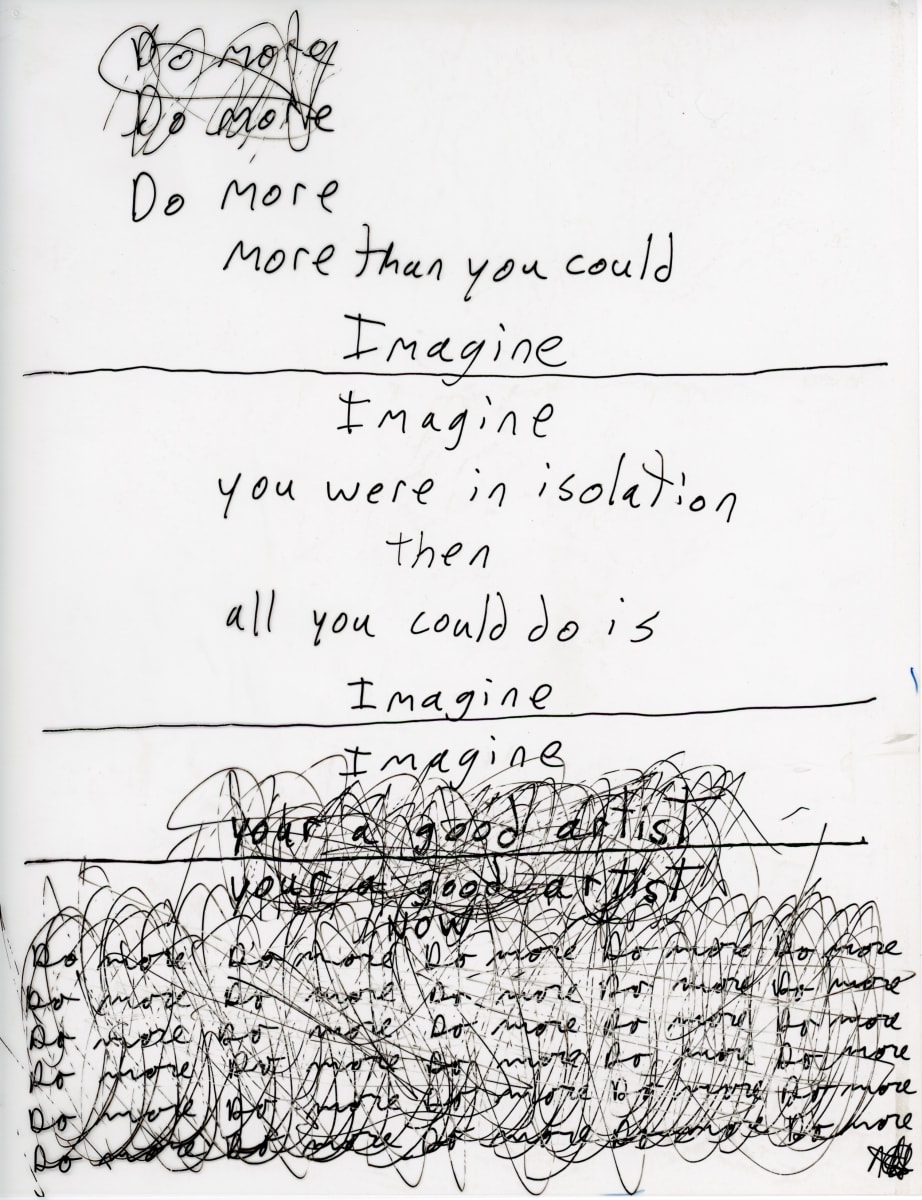 Do more
Do more
Do more
more than you could
Imagine
Imagine
you were in isolation
then
all you could do is
Imagine
Imagine
your a good artist
your a good artist
Now
Do more Do more Do more Do more Do more
Do more Do more Do more Do more Do more
Do more Do more Do more Do more Do more
Do more Do more Do more Do more Do more
Do more Do more Do more Do more Do more
Do more Do more Do more Do more Do more